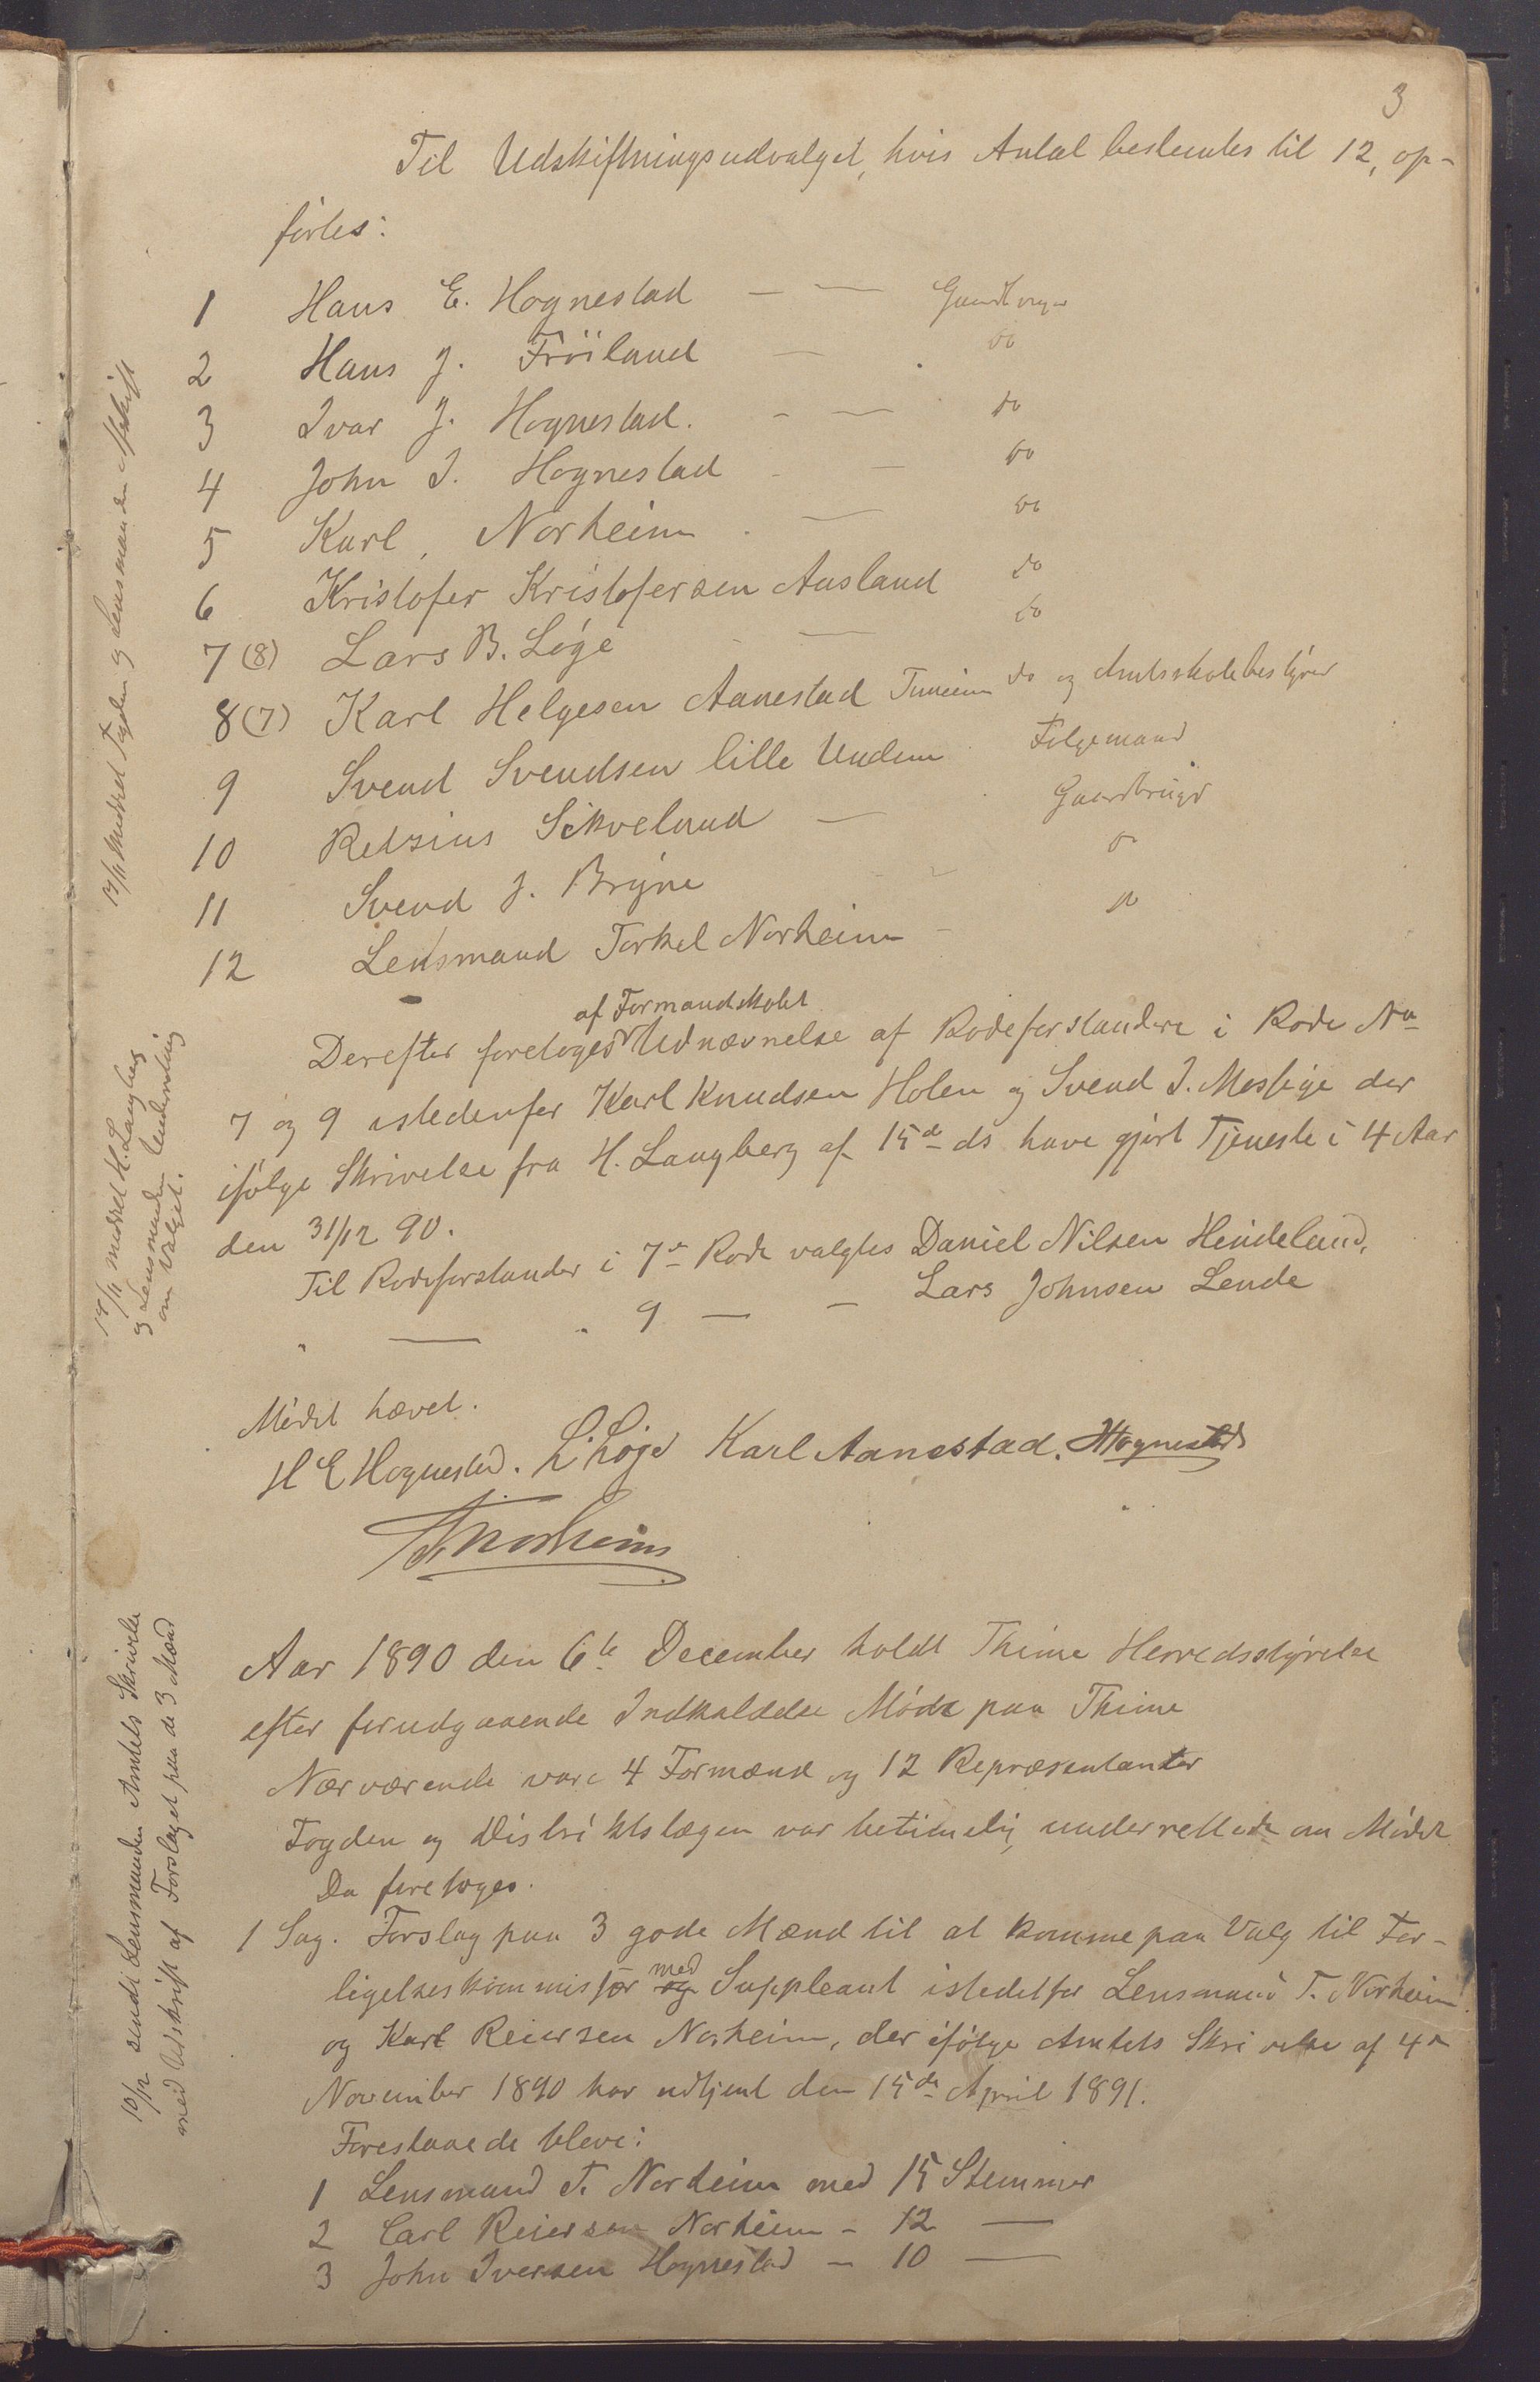 3
Til Udskiftningsudvalget, hvis Antal bestemtes til 12, op-
førtes:
1 Hans E. Hognestad — — Gaardbruger
2 Hans J. Fröiland — do
3 Ivar J. Hognestad. - — do
4 John I. Hognestad - — do
5 Karl, Norheim . — do
6 Kristofer Kristofersen Aasland do
7 (8) Lars B. Løge - — do
8 (7) Karl Helgesen Aanestad Tuneim do og Amtsskolebestyrer
9 Svend Svendsen lille Undem Følgemand
10 Retzius Sikveland — Gaardbruger
11 Svend J. Bryne - - do
12 Lensmand Torkel Norheim - do
af Formandskabet
Derefter foretoges Udnævnelse af Rodeforstandere i Rode No
7 og 9 istedenfor Karl Knudsen Holen og Svend I. Mossige der
ifølge Skrivelse fra H. Langberg af 15de ds have gjort Tjeneste i 4 Aar
den 31/12 90.
Til Rodeforstander i 7de Rode valgtes Daniel Nilsen Heideland,
" — " 9 — — Lars Johnsen Lende
Mødet hævet.
H E Hognestad. L. Løge Karl Aanestad. Hognestad
T. Norheim
Aar 1890 den 6te December holdt Thime Herredsstyrelse
efter forudgaaende Indkaldelse Møde paa Thime
Nærværende vare 4 Formænd og 12 Repræsentanter
Fogden og Distriktslægen var betimelig underrettede om Mødet
Da foretoges.
1 Sag. Forslag paa 3 gode Mænd til at komme paa Valg til For-
ligelseskommissær med og Suppleant istedetfor Lensmand T. Norheim
og Karl Reiersen Norheim, der ifølge Amtets Skrivelse af 4de
November 1890 har udtjent den 15de April 1891.
Foreslaaede bleve:
1 Lensmand T. Norheim med 15 Stemmer
2 Carl Reiersen Norheim - 12 —
3 John Iversen Hognestad - 10 —
17/11 meddelt Fogden og Lensmanden Afskrift
17/11 meddelt H. Langberg
og Lensmanden Underretning
om Valget.
10/12 sendt Lensmanden Amtets Skrivelse
med Udskrift af Forslaget paa de 3 Mænd